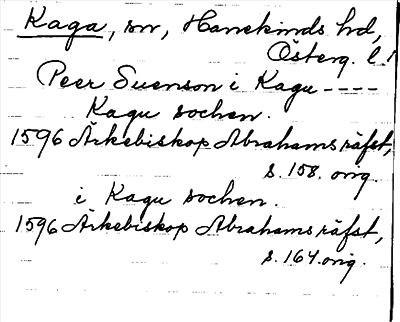 Kaga, sn, Hanekinds hd,
Österg. l.
Peer Suenson i Kagu ----
Kagu sochen.
1596 Ärkebiskop Abrahams räfst,
s. 158. orig.
i Kagu sochen.
1596 Ärkebiskop Abrahams räfst,
s. 164. orig.